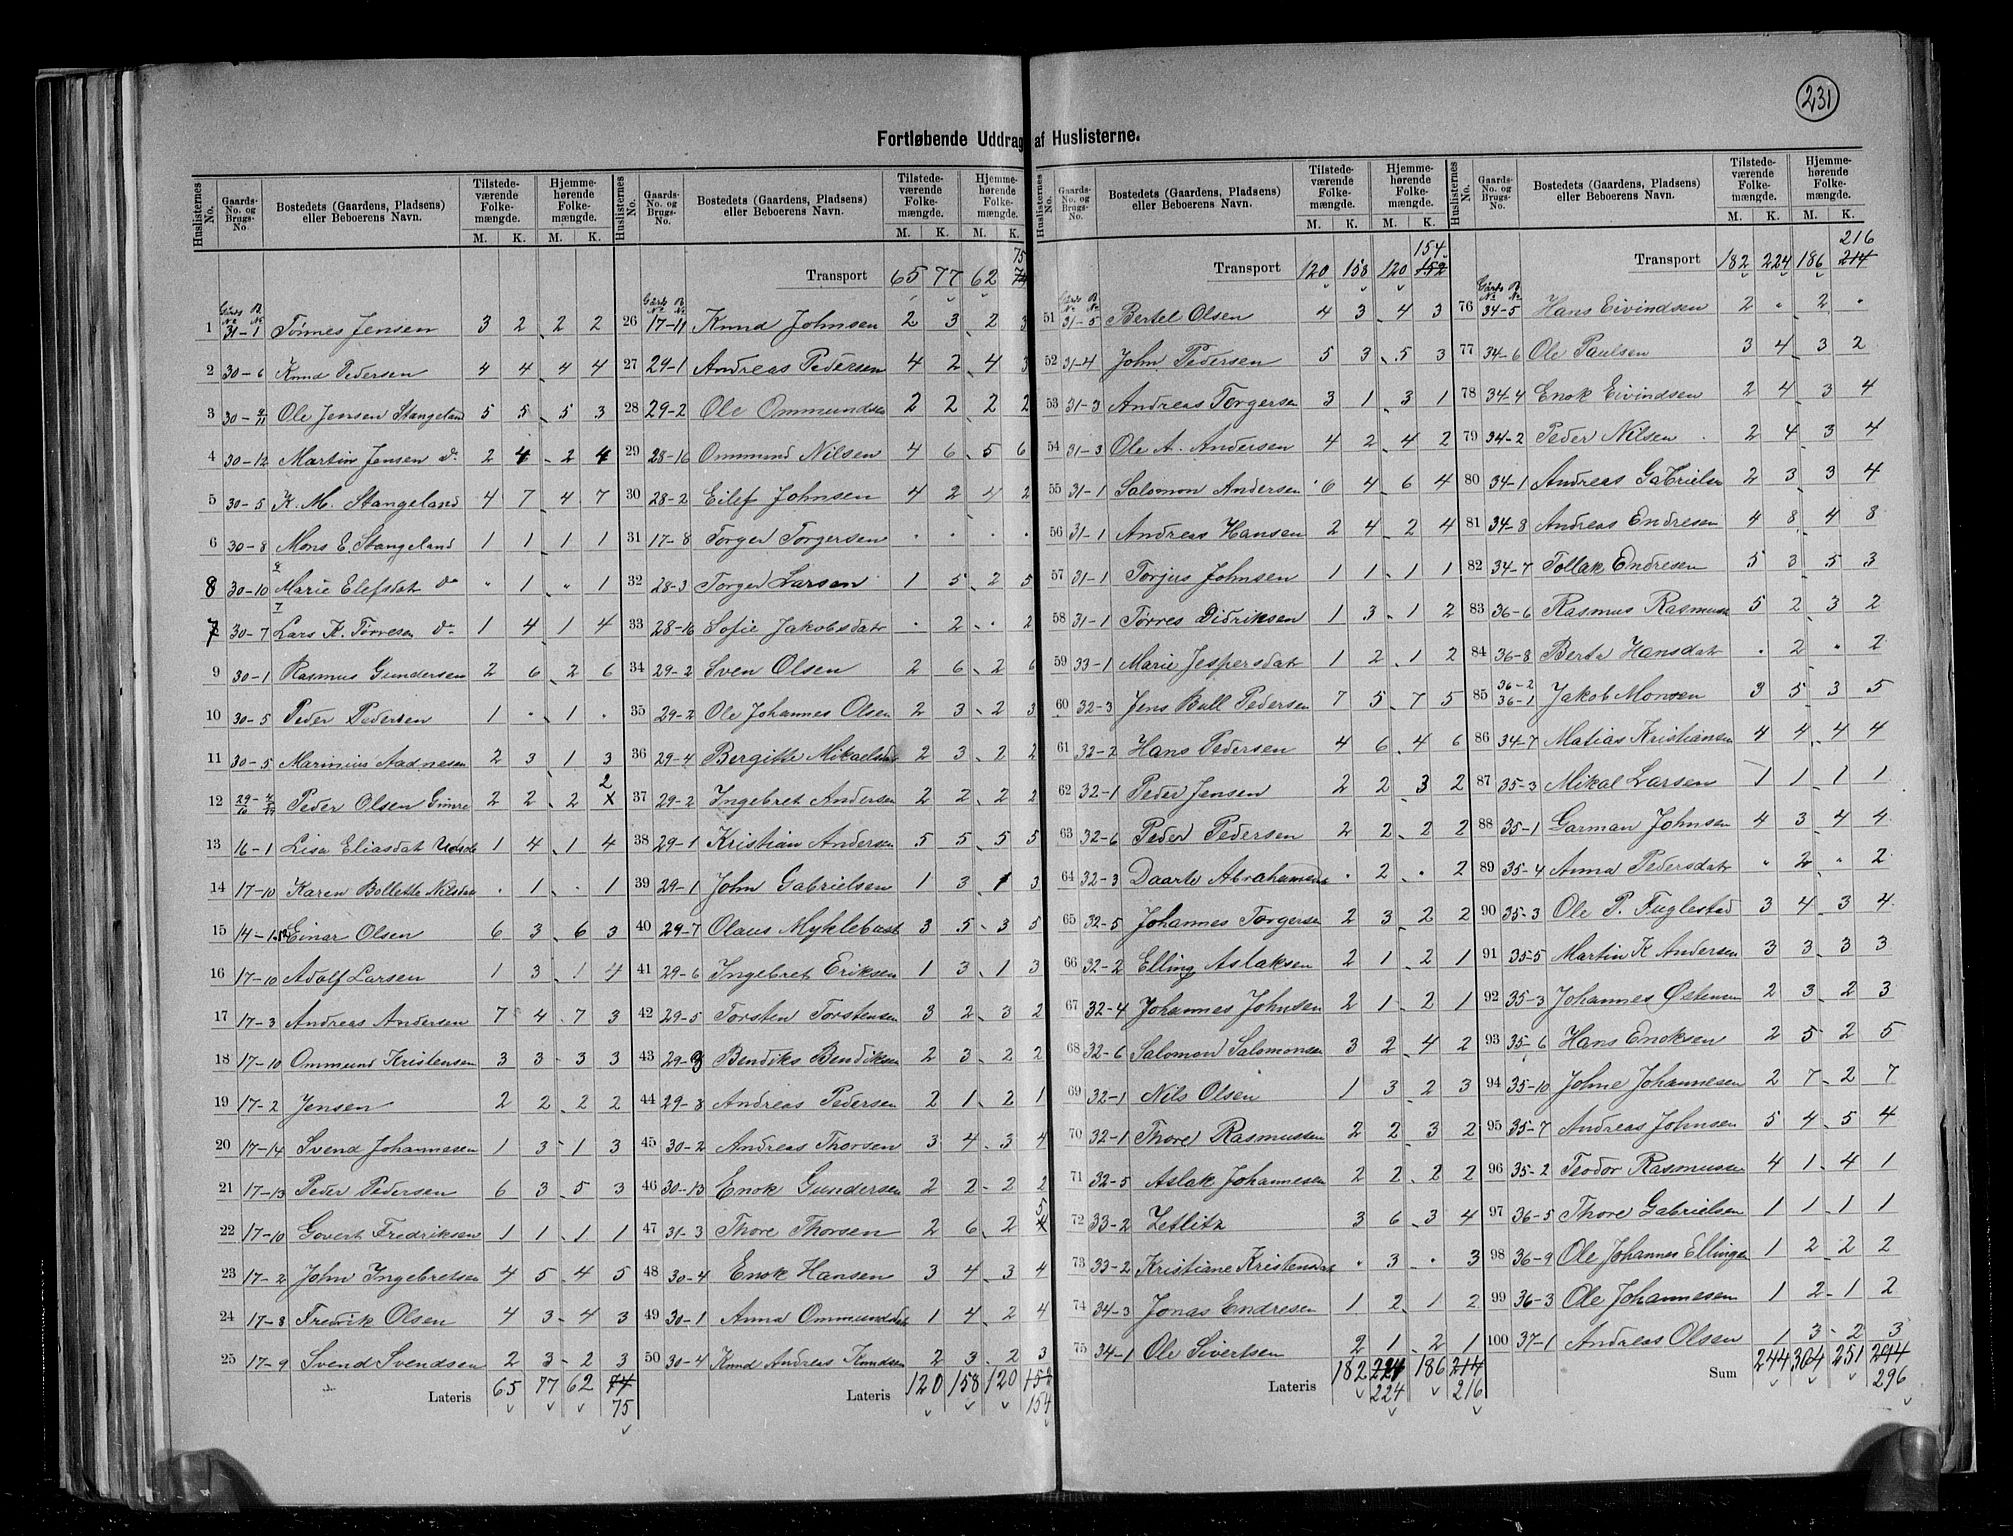 231
Fortløbende Uddrag af Huslisterne.
Huslisternes No. Gaards-No. og Brugs-No. Bostedets (Gaardens, Pladsens) eller Beboerens Navn. Tilstedeværende Folkemængde. M. K. Hjemmehørende Folkemængde. M. K.
Gårds No B. No
1 31-1 Tønnes Jensen 3 2 2 2
2 30-6 Knud Pedersen 4 4 4 4
3 30-9/11 Ole Jensen Stangeland 5 5 5 3
4 30-12 Martin Jensen do 2 4 2 4
5 30-5 K. M. Stangeland 4 7 4 7
6 30-8 Mons E. Stangeland 1 1 1 1
8 30-10 Marie Elefsdat do " 1 " 1
7 30-7 Lars K. Torresen do 1 4 1 4
9 30-1 Rasmus Gundersen 2 6 2 6
10 30-5 Peder Pedersen 1 . 1 .
11 30-5 Marinius Aadnesen 2 3 1 3
12 Peder Olsen Gimre 2 2 2 2
13 16-1 Lisa Eliasdat 1 4 1 4
14 17-10 Karen Bollette Nilsdat . 1 . 1
15 Einar Olsen 6 3 6 3
16 17-10 Adolf Larsen 1 3 1 4
17 17-3 Andreas Andersen 7 4 7 3
18 17-10 Ommund Kristensen 3 3 3 3
19 17-2 Jensen 2 2 2 2
20 17-14 Svend Johannesen 1 3 1 3
21 17-13 Peder Pedersen 6 3 5 3
22 17-10 Govert Fredriksen 1 1 1 1
23 17-2 John Ingebretsen 4 5 4 5
24 17-8 Fredrik Olsen 4 3 4 3
25 17-9 Svend Svendsen 2 3 2 3
Lateris 65 77 62 74
75
Huslisternes No. Gaards-No. og Brugs-No. Bostedets (Gaardens, Pladsens) eller Beboerens Navn. Tilstedeværende Folkemængde. M. K. Hjemmehørende Folkemængde. M. K.
75
Transport 65 77 62 74
Gårds No B. No
26 17-11 Knud Johnsen 2 3 2 3
27 29-1 Andreas Pedersen 4 2 4 3
28 29-2 Ole Ommundsen 2 2 2 2
29 28-16 Ommund Nilsen 4 6 5 6
30 28-2 Eilef Johnsen 4 2 4 2
31 17-8 Torger Torgersen . . . .
32 28-3 Torger Larsen 1 5 2 5
33 28-16 Sofie Jakobsdatr . 2 . 2
34 29-2 Sven Olsen 2 6 2 6
35 29-2 Ole Johannes Olsen 2 3 2 3
36 29-4 Bergitte Mikaelsdat 2 3 2 2
37 29-2 Ingebret Andersen 2 2 2 2
38 29-1 Kristian Andersen 5 5 5 5
39 29-1 John Gabrielsen 1 3 1 3
40 29-7 Olaus Myklebust 3 5 3 5
41 29-6 Ingebret Eriksen 1 3 1 3
42 29-5 Torsten Torstensen 3 2 3 2
43 29-3 Bendiks Bendiksen 2 3 2 2
44 29-8 Andreas Pedersen 2 1 2 1
45 30-2 Andreas Thorsen 3 4 3 4
46 30-13 Enok Gundersen 2 2 2 2
47 31-3 Thore Thorsen 2 6 2 5
48 30-4 Enok Hansen 3 4 3 4
49 30-1 Anna Ommundsdat 1 4 2 4
50 30-4 Knud Andreas Knudsen 2 3 2 3
Lateris 120 158 120 158
154
Huslisternes No. Gaards-No. og Brugs-No. Bostedets (Gaardens, Pladsens) eller Beboerens Navn. Tilstedeværende Folkemængde. M. K. Hjemmehørende Folkemængde. M. K.
154
Transport 120 158 120 152
Gårds No B. No
51 31-5 Bertel Olsen 4 3 4 3
52 31-4 John Pedersen 5 3 5 3
53 31-3 Andreas Torgersen 3 1 3 1
54 31-3 Ole A. Andersen 4 2 4 2
55 31-1 Salomon Andersen 6 4 6 4
56 31-1 Andreas Hansen 2 4 2 4
57 31-1 Torjus Johnsen 1 1 1 1
58 31-1 Torres Didriksen 1 3 1 2
59 33-1 Marie Jespersdatr 1 2 1 2
60 32-3 Jens Bull Pedersen 7 5 7 5
61 32-2 Hans Pedersen 4 6 4 6
62 32-1 Peder Jensen 2 2 3 2
63 32-6 Peder Pedersen 2 2 2 2
64 32-3 Daarte Abrahamsdat . 2 . 2
65 32-5 Johannes Torgersen 2 3 2 2
66 32-2 Elling Aslaksen 2 1 2 1
67 32-4 Johannes Johnsen 2 1 2 1
68 32-6 Salomon Salomonsen 3 2 4 2
69 32-1 Nils Olsen 1 3 2 3
70 32-1 Thore Rasmussen 2 2 3 2
71 32-5 Aslak Johannesen 2 2 2 2
72 33-2 Zetlitz 3 6 3 4
73 33-2 Kristiane Kristensdat . 3 . 3
74 34-3 Jonas Endresen 1 2 1 2
75 34-1 Ole Sivertsen 2 1 2 1
Lateris 182 224 186 214
224 216
Huslisternes No. Gaards-No. og Brugs-No. Bostedets (Gaardens, Pladsens) eller Beboerens Navn. Tilstedeværende Folkemængde. M. K. Hjemmehørende Folkemængde. M. K.
216
Transport 182 224 186 214
Gårds No B. No
76 34-5 Hans Eivindsen 2 " 2 "
77 34-6 Ole Paulsen 3 4 3 2
78 34-4 Enok Eivindsen 2 4 3 4
79 34-2 Peder Nilsen 2 4 3 4
80 34-1 Andreas Gabrielsen 2 3 3 4
81 34-8 Andreas Endresen 4 8 4 8
82 34-7 Tollak Endresen 5 3 5 3
83 36-6 Rasmus Rasmussen 5 2 3 2
84 36-8 Berta Hansdat " 2 " 2
36-2
85 36-1 Jakob Monsen 3 5 3 5
86 34-7 Matias Kristiansen 4 4 4 4
87 35-3 Mikal Larsen 1 1 1 1
88 35-1 Garman Johnsen 4 3 4 4
89 35-4 Anna Pedersdatr " 2 " 2
90 35-3 Ole P. Fuglestad 3 4 3 4
91 35-5 Martin K Andersen 3 3 3 3
92 35-3 Johannes Østensen 2 3 2 3
93 35-6 Hans Enoksen 2 5 2 5
94 35-10 Johne Johannesen 2 7 2 7
95 35-7 Andreas Johnsen 5 4 5 4
96 35-2 Teodor Rasmussen 4 1 4 1
97 36-5 Thore Gabrielsen 1 1 1 1
98 36-9 Ole Johannes Ellingsen 1 2 2 2
99 36-3 Ole Johannesen 1 2 1 2
100 37-1 Andreas Olsen 1 3 2 3
Sum 244 304 251 294
296